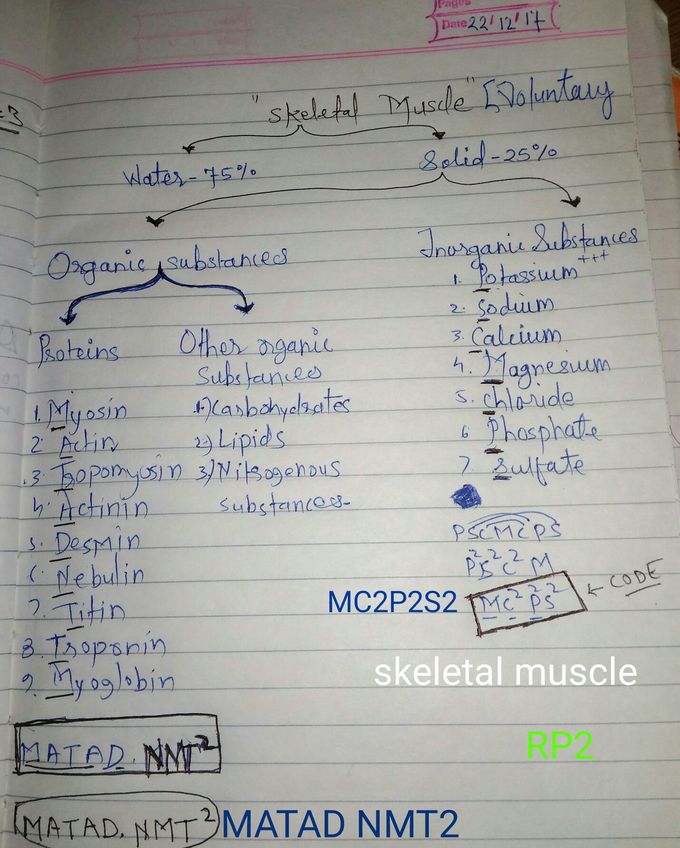 Pages
Date 22/12/17
"Skeletal Muscle" [Voluntary
Water-75%
Solid-25%
Organic substances
Inorganic Substances
1. Potassium +++
2. Sodium
3. Calcium
4. Magnesium
5. chloride
6 Phosphate
7. Sulfate
Proteins
1. Myosin
2. Actin
3. Tropomyosin
4. Actinin
5. Desmin
6. Nebulin
7. Titin
8. Troponin
9. Myoglobin
Other organic
Substances
1.) Carbohydrates
2.) Lipids
3) Nitrogenous
substances-
PSCMCPS
P²S²C²M
MC2P2S2
MC²PS²
← CODE
skeletal muscle
RP2
MATAD. NMT²
MATAD. NMT²
MATAD NMT2